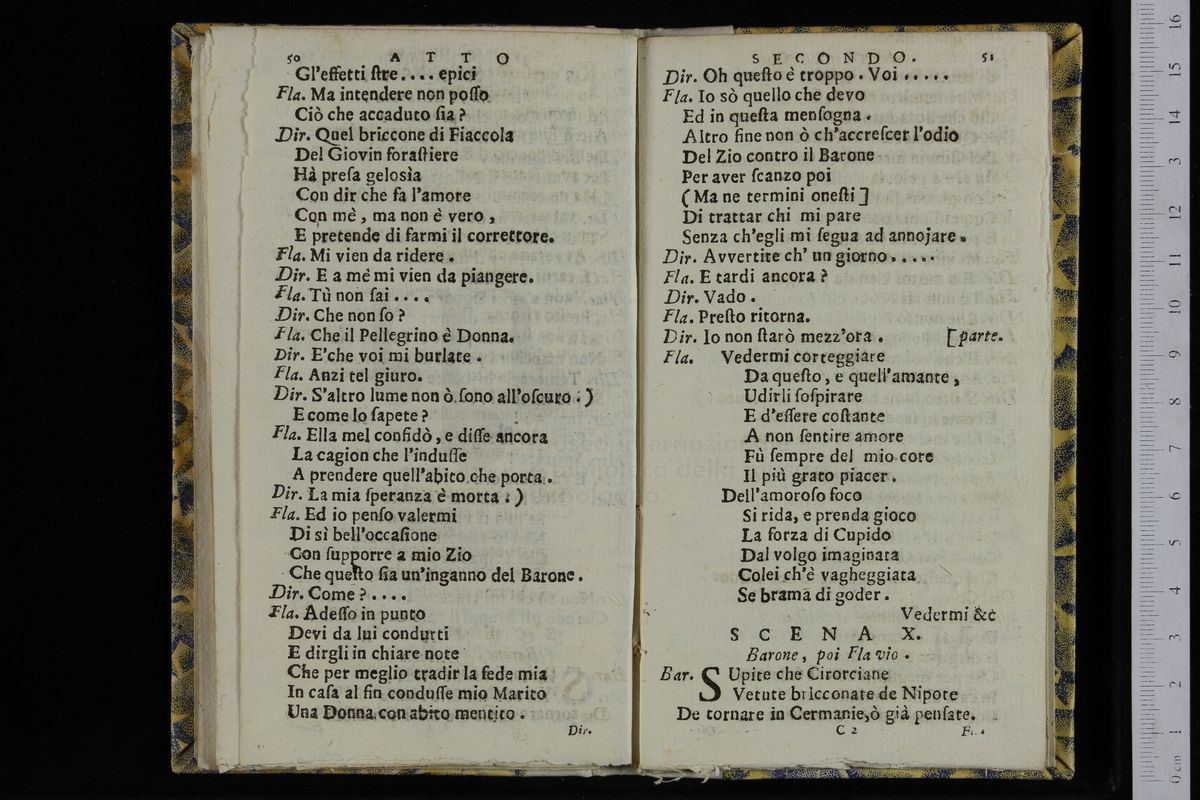 50 A T T O
Gl'effetti ſtre.... epici
Fla. Ma intendere non poſſo
Ciò che accaduto ſia ?
Dir. Quel briccone di Fiaccola
Del Giovin foraſtiere
Hà preſa gelosìa
Con dir che fa l'amore
Con mè , ma non è vero ,
E pretende di farmi il correttore.
Fla. Mi vien da ridere .
Dir. E a mè mi vien da piangere.
Fla. Tù non ſai ....
Dir. Che non ſo ?
Fla. Che il Pellegrino è Donna.
Dir. E'che voi mi burlate .
Fla. Anzi tel giuro.
Dir. S'altro lume non ò ſono all'oſcuro . )
E come lo ſapete ?
Fla. Ella mel confidò , e diſſe ancora
La cagion che l'induſſe
A prendere quell'abito che porta .
Dir. La mia ſperanza è morta . )
Fla. Ed io penſo valermi
Di sì bell'occaſione
Con ſupporre a mio Zio
Che queſto ſia un'inganno del Barone .
Dir. Come ? ....
Fla. Adeſſo in punto
Devi da lui condurti
E dirgli in chiare note
Che per meglio tradir la fede mia
In caſa al fin conduſſe mio Marito
Una Donna con abito mentito .
Dir.
S E C O N D O . 51
Dir. Oh queſto è troppo . Voi .....
Fla. Io sò quello che devo
Ed in queſta menſogna .
Altro fine non ò ch'accreſcer l'odio
Del Zio contro il Barone
Per aver ſcanzo poi
( Ma ne termini oneſti ]
Di trattar chi mi pare
Senza ch'egli mi ſegua ad annojare .
Dir. Avvertite ch' un giorno .....
Fla. E tardi ancora ?
Dir. Vado .
Fla. Preſto ritorna.
Dir. Io non ſtarò mezz'ora . [parte.
Fla. Vedermi corteggiare
Da queſto , e quell'amante ,
Udirli ſoſpirare
E d'eſſere coſtante
A non ſentire amore
Fù ſempre del mio core
Il più grato piacer .
Dell'amoroſo foco
Si rida, e prenda gioco
La forza di Cupido
Dal volgo imaginata
Colei ch'è vagheggiata
Se brama di goder .
Vedermi &c
S C E N A X.
Barone , poi Flavio .
Bar. SUpite che Cirorciane
Vetute bricconate de Nipote
De tornare in Cermanie,ò già penſate.
C 2 Fl.